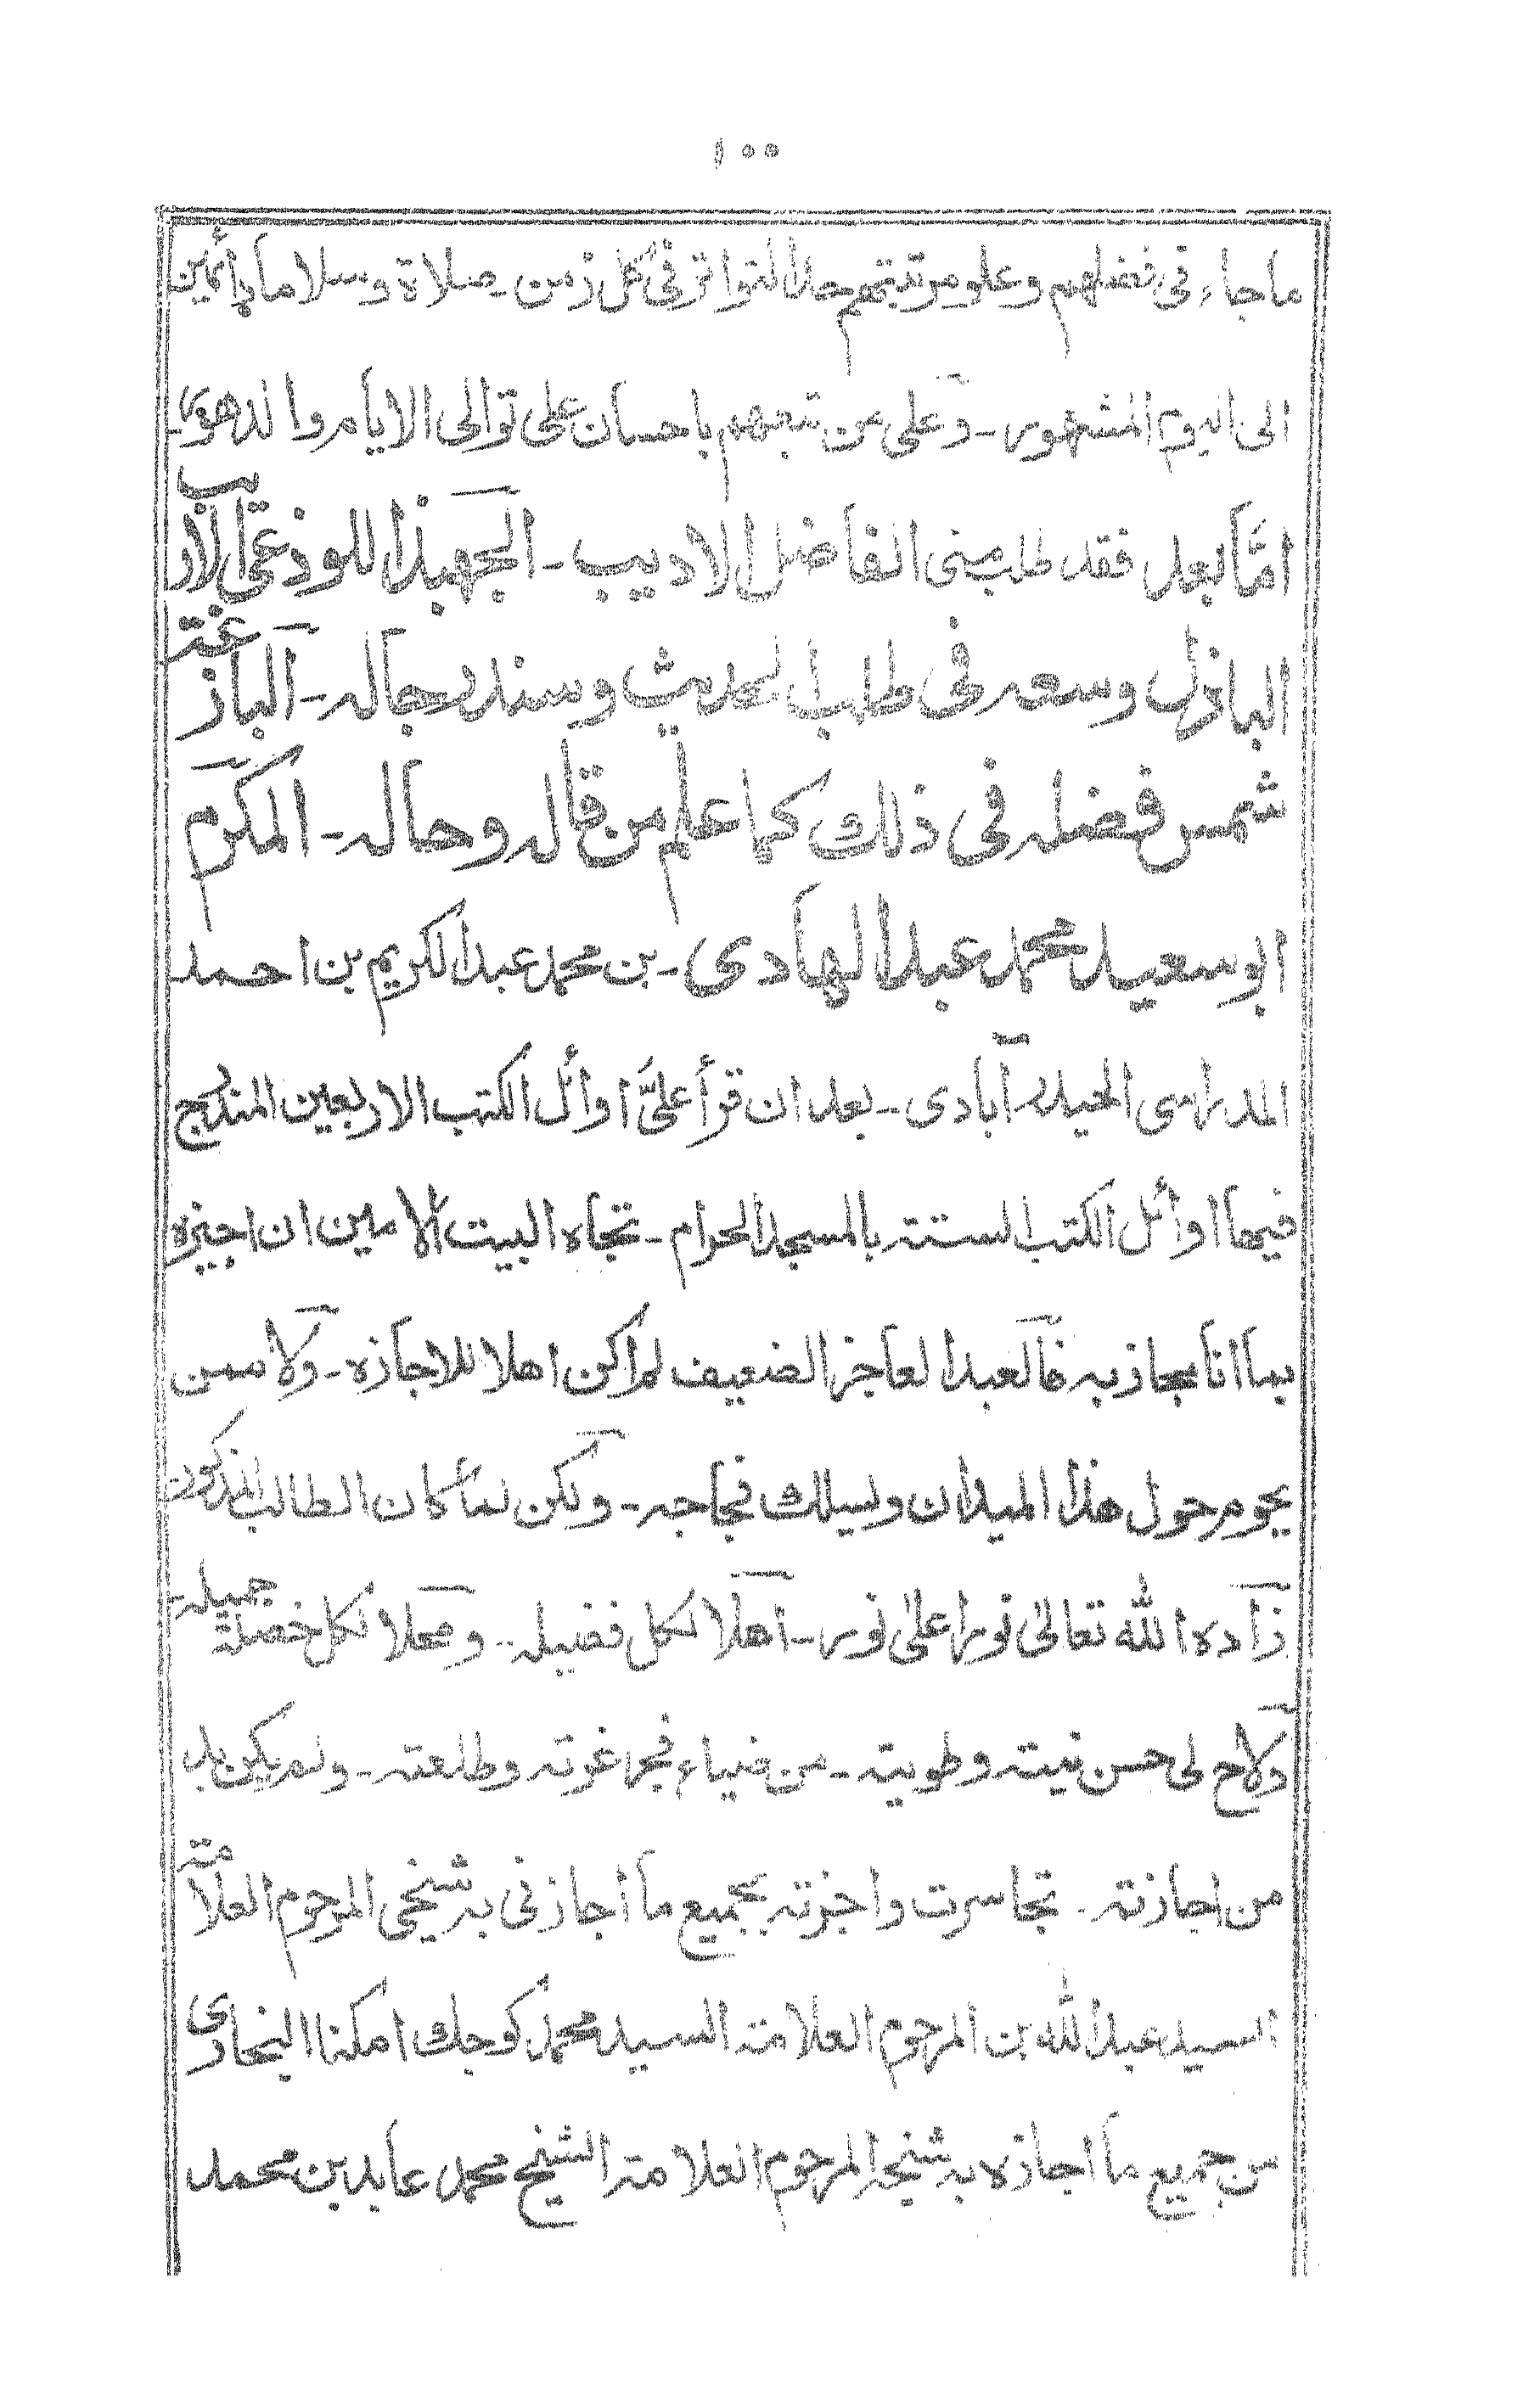 ١٠٠
ما جاء فى فضلهم وعلو مرتبتهم حد التواتر فى كل زمن ـ صلاة وسلاما دائمين
الى اليوم المشهور ـ وعلى من تبعهم باحسان على توالى الايام والدهور ـ
امّا بعد فقد طلب منى الفاضل الاديب ـ الجهبذ اللوذعى الاريب
الباذل وسعه فى طلب الحديث وسند رجاله ـ البازغة
شمس فضله فى ذلك كما علم من قاله وحاله ـ المكرم
ابو سعيد محمد عبد الهادى ـ بن محمد عبد الكريم بن احمد
المدراسى الحيدرآبادى ـ بعد ان قرأ علىَّ اوائل الكتب الاربعين المندرج
فيها اوائل الكتب الستة بالمسجد الحرام ـ تجاه البيت الامين ان اجيزه
بما انا مجاز به فالعبد العاجز الضعيف لم اكن اهلا للاجازه ـ ولا ممن
يحوم حول هذا الميدان ويسلك فجاجه ـ ولكن لما كان الطالب المذكور
زاده الله تعالى نورا على نور ـ اهلا لكل فضيله ـ ومحلا لكل خصلة جميله ـ
ولاح لى حسن نيته وطويته ـ من ضياء فجر غرته وطلعته ـ ولم يكن بد
من اجازته ـ تجاسرت واجزته بجميع ما أجازنى به شيخى المرحوم العلامة
السيد عبد الله بن المرحوم العلامة السيد محمد كوجك امكنا البخارى
من جميع ما اجازه به شيخه المرحوم العلامة الشيخ محمد عابد بن محمد